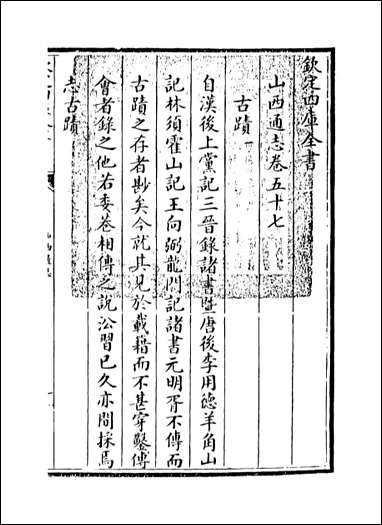 欽定四庫全書
山西通志卷五十七
古蹟
自漢後上黨記三晉錄諸書暨唐後李用德羊角山
記林須霍山記王向弼龍門記諸書元明胥不傳而
古蹟之存者尠矣今就其見於載籍而不甚穿鑿傅
會者錄之他若委巷相傳之說沿習已久亦間採焉
志古蹟